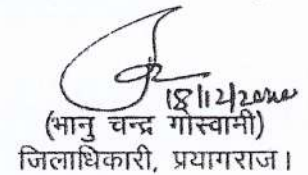 18/12/2020
(भानु चन्द्र गोस्वामी)
जिलाधिकारी, प्रयागराज।